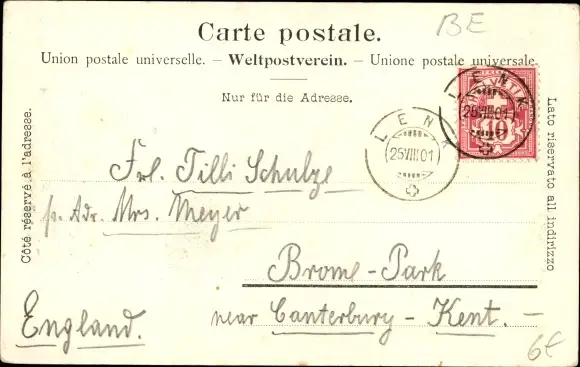 BE
Carte postale.
Union postale universelle. – Weltpostverein. – Unione postale universale.
Nur für die Adresse.
Côté réservé à l'adresse.
Lato riservato all indirizzo
HELVETIA
10
LENK
25 VIII 01
LENK
25 VIII 01
Frl. Tilli Schulze
pr. Adr. Mrs. Meyer
Brome-Park
near Canterbury - Kent. -
England.
6€